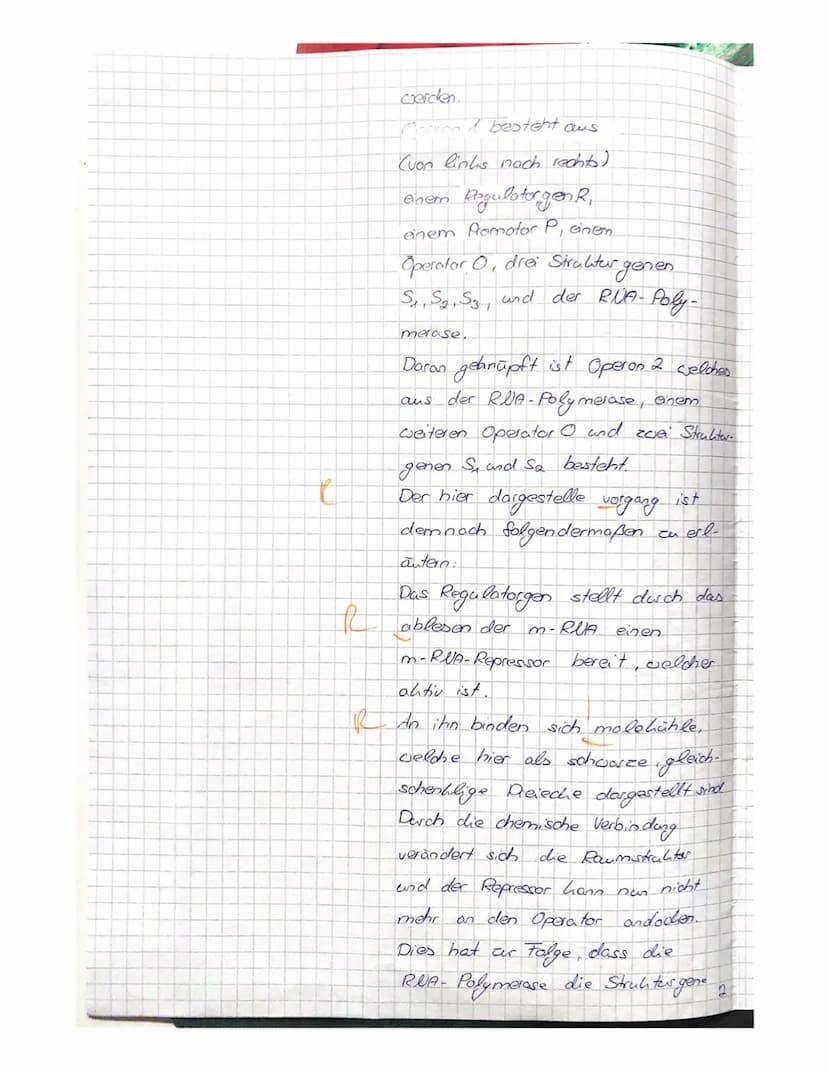 werden.
besteht aus
(von links nach rechts)
einem Regulatorgen R,
einem Promotor P, einem
Operator O, drei Strukturgenen
S1, S2, S3, und der RNA-Poly-
merase.
Daran geknüpft ist Operon 2 welches
aus der RNA-Polymerase, einem
weiteren Operator O und zwei Struktur-
genen S1 und S2 besteht.
R
Der hier dargestelle vorgang ist
demnach folgendermaßen zu erl-
äutern:
Das Regulatorgen stellt durch das
R
ablesen der m-RNA einen
m-RNA-Repressor bereit, welcher
aktiv ist.
R
An ihn binden sich moleküle,
welche hier als schwarze, gleich-
schenklige Dreiecke dargestellt sind
Durch die chemische Verbindung
verändert sich die Raumstruktur
und der Repressor kann nun nicht
mehr an den Operator andocken.
Dies hat zur Folge, dass die
RNA-Polymerase die Strukturgene
2